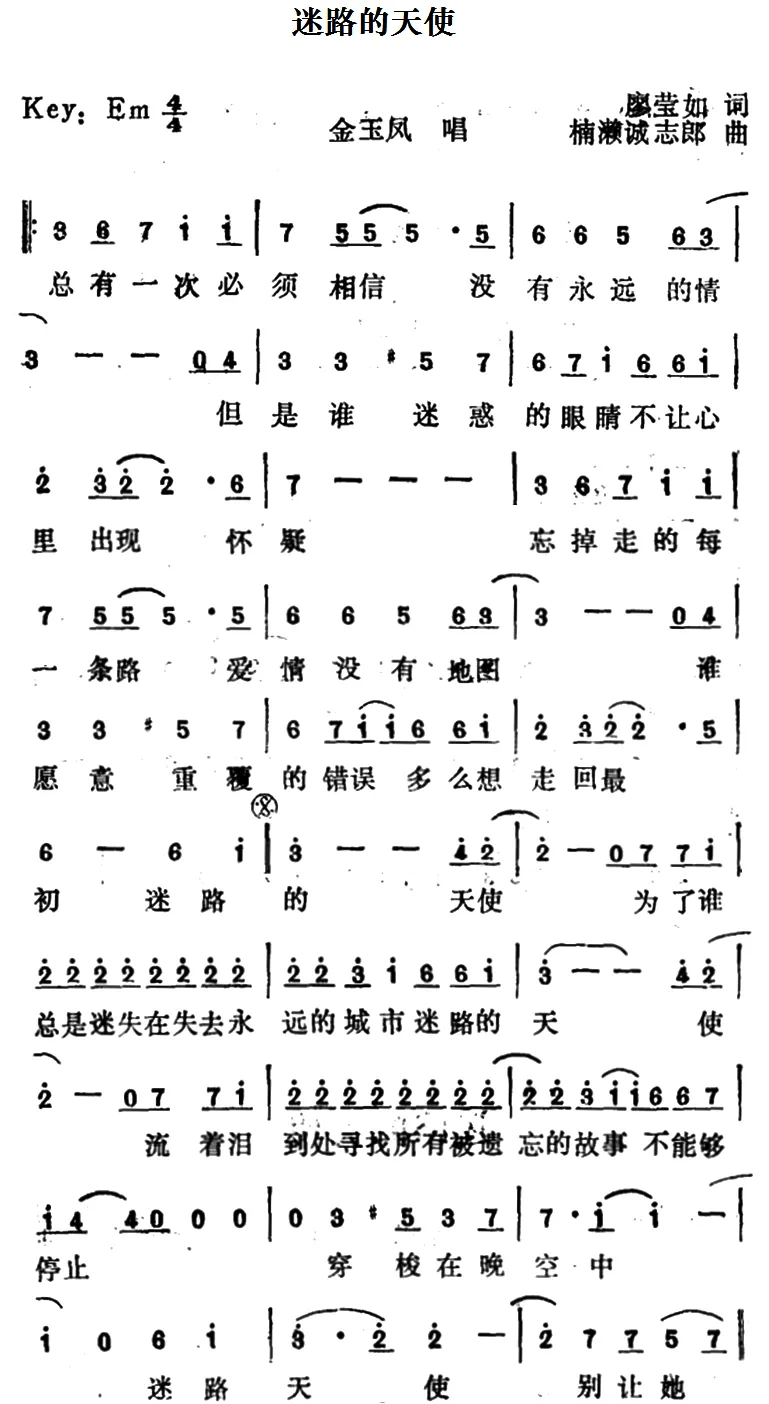 迷路的天使
Key: Em 4/4
廖莹如 词
金玉凤 唱 楠濑诚志郎 曲
3 6 7 i i | 7 5 5 5 · 5 | 6 6 5 6 3 |
总有一次必须相信 没有永远的情
3 — — 0 4 | 3 3 #5 7 | 6 7 i 6 6 i |
但是谁迷惑的眼睛不让心
2 3 2 2 · 6 | 7 — — — | 3 6 7 i i |
里出现 怀疑 忘掉走的每
7 5 5 5 · 5 | 6 6 5 6 3 | 3 — — 0 4 |
一条路 爱情没有地图 谁
3 3 #5 7 | 6 7 i i 6 6 i | 2 3 2 2 · 5 |
愿意重覆的错误多么想走回最
6 — 6 i | 3 — — 4 2 | 2 — 0 7 7 i |
初迷路的 天使 为了谁
2 2 2 2 2 2 2 2 | 2 2 3 i 6 6 i | 3 — — 4 2 |
总是迷失在失去永远的城市迷路的天 使
2 — 0 7 7 i | 2 2 2 2 2 2 2 2 | 2 2 3 i i 6 6 7 |
流着泪到处寻找所有被遗忘的故事不能够
i 4 4 0 0 0 | 0 3 #5 3 7 | 7 · i i — |
停止 穿梭在晚空中
i 0 6 i | 3 · 2 2 — | 2 7 7 5 7 |
迷路天 使 别让她